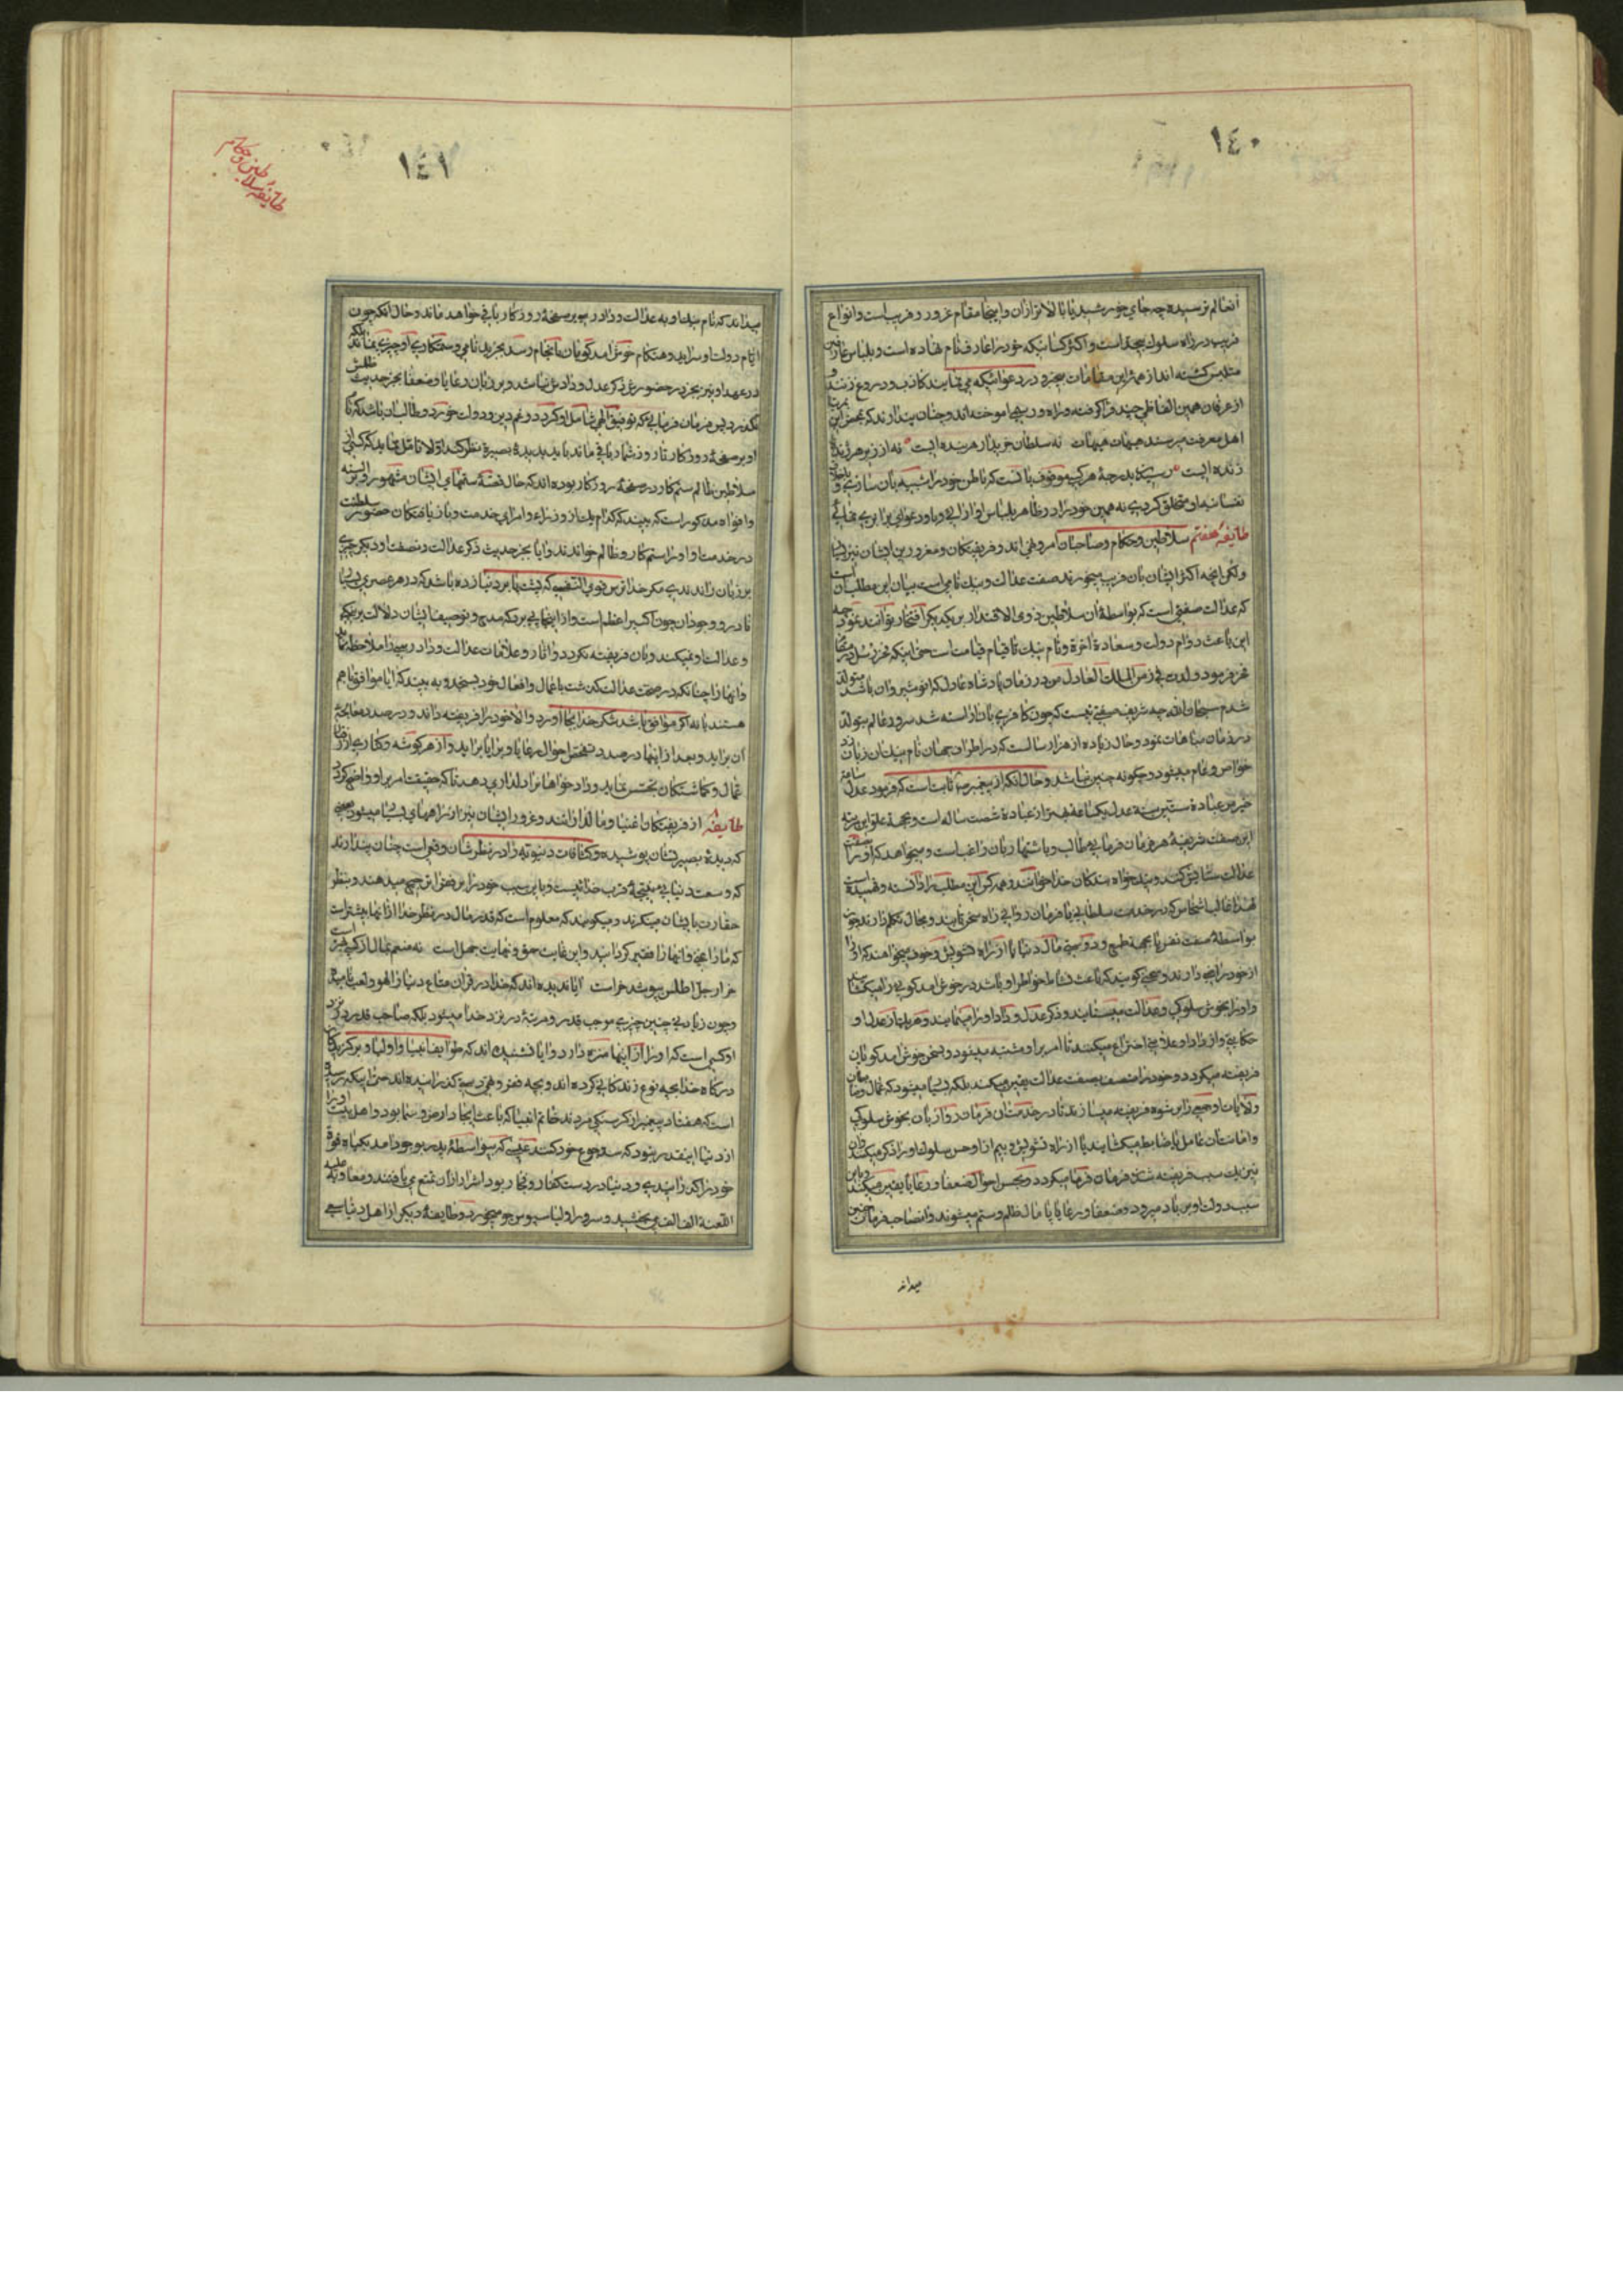 ١٤٠
آنعالم ترسیده چه جای خورشید یا بالاتر از آن و اینجا مقام غرور و فریب است و انواع
فریب در راه سلوک بیحد است و اکثر کسانیکه خود را عارف نام نهاده است و بلباس عارفین
متلبس گشته اند از همۀ این مقامات بیخبرو در دعوائیکه می نمایند کاذب و دروغ زنند و
از عرفان همین الفاظی چند فرا گرفته و راه و رسمی آموخته اند و چنان پندارند که بمحض این
اهل معرفت میرسند هیهات هیهات نه سلطان خریدار هر بنده ایست نه از زیر هر ژنده
زنده ایست رسیدن بدرجۀ هر کس موقوف بآنست که باطن خود را شبیه بآن سازی و
نفسانیه او متخلق گردی نه همین خود را در ظاهر بلباس او آرایی و باو در عوام برابری نمائی
طایفۀ هفتم سلاطین و حکام و صاحبان امر و نهی اند و فریفتگان و مغرورین ایشان نیز بسیار
ولکن آنچه اکثر ایشان بآن فریب میخورند صفت عدالت و نیک نامی است بیان این مطلب آن است
که عدالت صفتی است که بواسطۀ آن سلاطین ذوی الاقتدار بر یکدیگر افتخار توانند نمود چه
این باعث دوام دولت و سعادة آخرة و نام نیک تا قیام قیامت است حتی اینکه فخر رسل در مقام
فخر فرمود ولدت فی زمن الملک العادل من در زمان پادشاه عادل که انوشیروان باشد متولد
شدم سبحان الله چه شریف صفتی نیست که چون کافری بآن آراسته شد سرور عالم بتولد
در زمان او مباهات نمود و حال زیاده از هزار سالست که در اطراف جهان نام نیک آن زبان زد
خواص و عوام میشود و چگونه چنین نباشد و حال آنکه از پیغمبر ص ثابت است که فرمود عدل ساعة
خیر من عبادة ستین سنة عدل یکساعة بهتر از عبادة شصت ساله است و بجهة علو این مرتبه
این صفت شریفه هر فرمان فرمایی طالب و باشتهار بآن راغب است و میخواهد که او را بصفت
عدالت ستایش کنند و پند خواه بندگان خدا خوانند و هر کس این مطلب را دانسته و فهمیده است
لهذا غالب اشخاص که در خدمت سلطانی یا فرمان روایی راه سخن یابند و مجال تکلم دارند چون
بواسطۀ صفت نفس یا بجهة طمع و دوستی مال دنیا یا از راه تشویش و خود میخواهند که او را
از خود راضی دارند و سخنی گویند که باعث نشاط خاطر او باشد در خوش آمد گویی را میگشایند
و او را بخوش سلوکی و عدالت میستایند و ذکر عدل و داد او را مینمایند و هر یک از عدل او
حکایتی و از داد او علامتی اختراع میکنند تا امر بر او مشتبه میشود و بسخن خوش آمد گویان
فریفته میگردد و خود را متصف بصفت عدالت یقین میکند بلکه بسیار میشود که عمال و ضابطان
ولایات او جمعی را برشوه فریفته میسازند تا در خدمت آن فرمان روا زبان بخوش سلوکی
و امانت آن عامل یا ضابط میگشایند یا از راه تشویش و بیم از او حسن سلوک او را ذکر میکنند و آن
نیز یک سبب فریفته شدن فرمان فرما میگردد و بحسن احوال ضعفا و رعایا یقین میکند و باین
سبب دولت او بر باد میرود و ضعفا و رعایا پامال ظلم و ستم میشوند و آن صاحب فرمان چنین
میداند
١٤١
طایفۀ سلاطین و حکام
میداند که نام نیک او به عدالت و داد در پوبر صفحۀ روزگار باقی خواهد ماند و حال آنکه چون
ایام دولت او سرآید و هنگام خوش آمد گویان بانجام رسد بجز بد نامی و ستمکاری او چیزی نماند بلکه
در عهد او نیز بجز در حضورش ذکر عدل و دادش نباشد و بر زبان رعایا و ضعفا بجز حدیث ظلمش
نگذرد پس فرمان فرمایی که توفیق الهی شامل او گردد و غم دین و دولت خورد و طالب آن باشد که نام
او بر صفحۀ روزگار تا روز شمار باقی ماند باید بدیدۀ بصیرة نظر کند اولا تامل نماید که کثیر از
سلاطین ظالم ستمکار در صفحۀ روزگار بوده اند که حال قصۀ ستمهای ایشان مشهور و بر السنه
و افواه مذکور است که ببیند که کدام یک از وزراء و امرای خدمت و باریافتگان حضور سلطنت
در خدمت او او را ستمکار و ظالم خواندند و آیا بجز حدیث ذکر عدالت و نصفت او دیگر چیزی
بر زبان راندندی مگر خدا ترس قوی النفسی که پشت پا بر دنیا زده باشد که در هر عصری بسیار
نادر و وجود آن چون اکسیر اعظم است و از اینها پی برد که مدح و توصیف ایشان دلالت بر نیکی
و عدالت او نمیکند و بآن فریفته نگردد و آثار و علامات عدالت و دادرسی را ملاحظه نماید
و آنها را چنانکه در صفت عدالت گذشت با اعمال و افعال خود بسنجد و به بیند که آیا موافق با هم
هستند یا نه اگر موافق باشد شکر خدا بجا آورد و الا خود را فریفته داند و در صدد معالجۀ
آن برآید و بعد از اینها در صدد تفحص احوال رعایا و برایا برآید و از هر گوشه و کناری از رفتار
عمال و گماشتگان تجسس نماید و دادخواهان را دلداری دهد تا که حقیقت امر بر او واضح گردد
طایفۀ از فریفتگان اغنیا و مالدارانند و غرور ایشان نیز از راههای بسیار میشود بعضی
که دیدۀ بصیرتشان پوشیده و کثافات دنیویه را در نظر شان وقعی است چنان پندارند
که وسعت دنیایی نتیجۀ قرب خدائیست و باین سبب خود را بر فقرا ترجیح میدهند و بنظر
حقارت بایشان مینگرند و میگویند که معلوم است که قدر مال در نظر خدا از آنها بیشتر است
که ما را غنی و آنها را فقیر گردانید و این غایت حمق و نهایت جهل است نه منعم بمال از کسی بهتر است
خر ار جل اطلس بپوشد خر است آیا ندیده اند که خدا در قرآن متاع دنیا را لهو و لعب نامیده
و چون زیادتی چنین چیزی موجب قدر و مرتبۀ در نزد خدا میشود بلکه صاحب قدر در نزد
او کسی است که او را از اینها منزه دارد و آیا نشنیده اند که طوایف انبیا و اولیا و برگزیدگان
درگاه خدا بچه نوع زندگانی کرده اند و بچه فقر و تهیدستی گذرانیده اند حتی اینکه رسیده
است که هفتاد پیغمبر از گرسنگی مردند خاتم انبیا که باعث ایجاد ارض و سما بود و اهل بیت او را
از دنیا اینقدر نبود که سد جوع خود کنند عیسی که بواسطۀ پدر بوجود آمد بگیاه قوة
خود را گذرانیدی و دنیا در دست کفار و فجار بود اشرار از آن تمتع می یافتند و معاویه علیه
اللعنة الف الف می بخشید و سرور اولیا سبوس جو میخورد و طایفۀ دیگر از اهل دنیا سعی